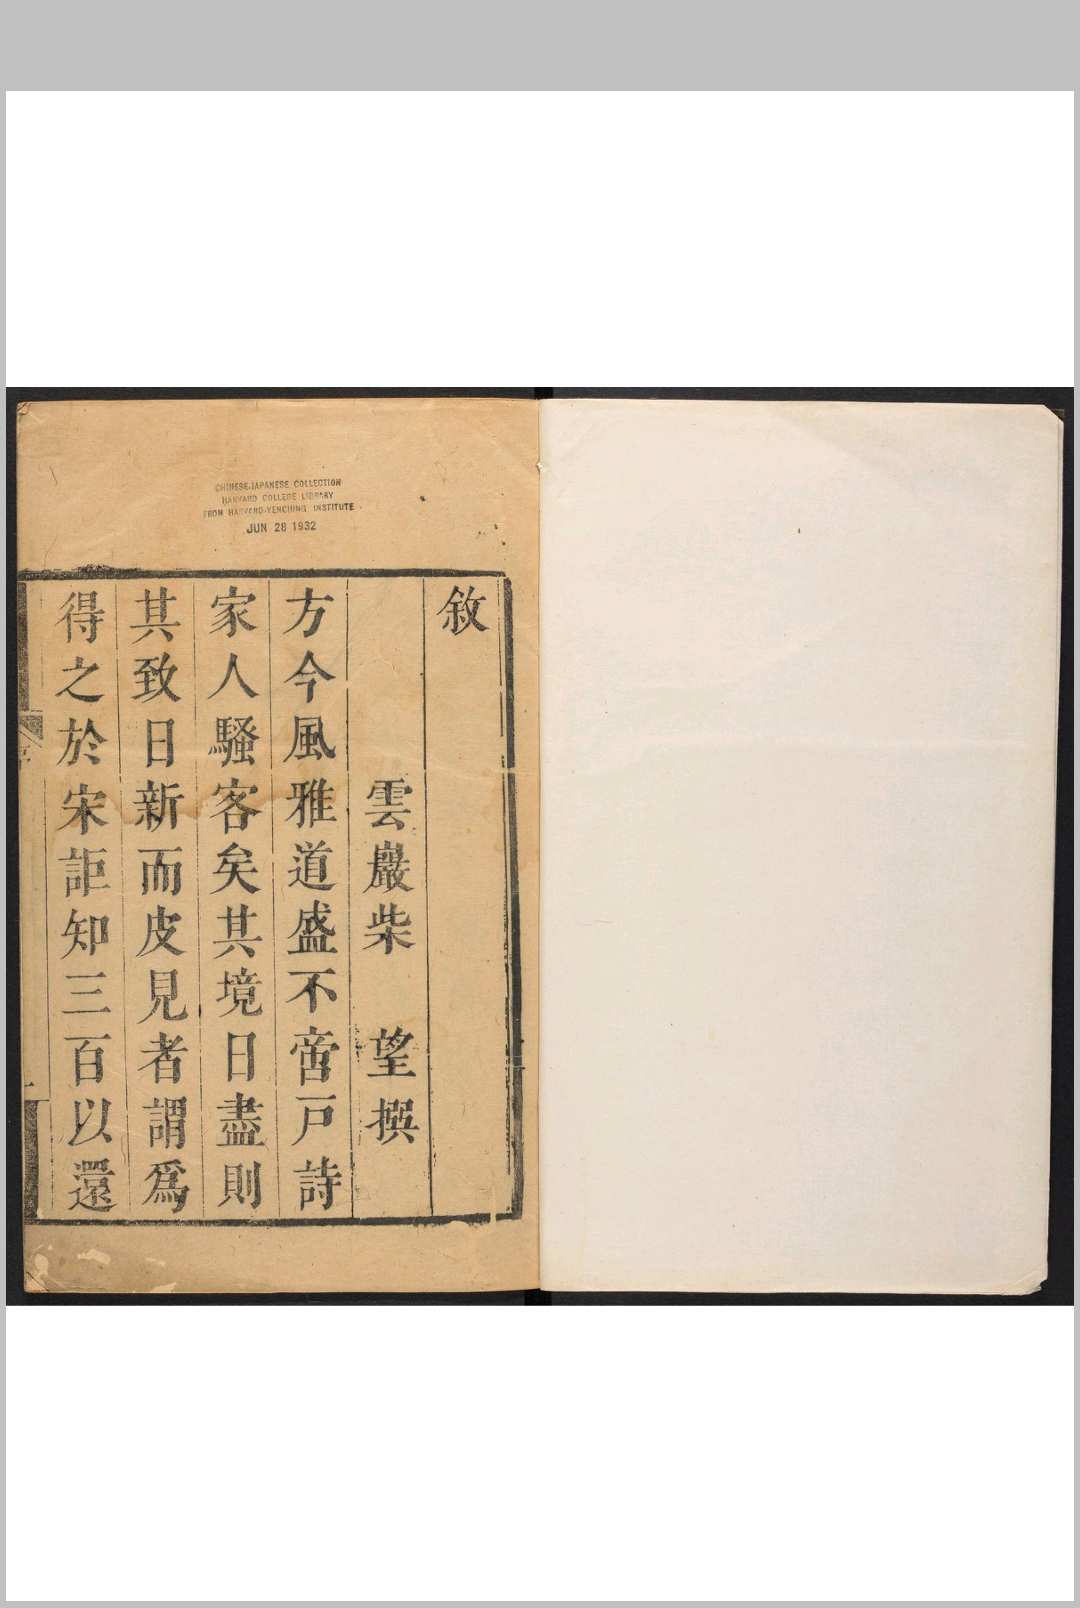 CHINESE-JAPANESE COLLECTION
HARVARD COLLEGE LIBRARY
FROM HARVARD-YENCHING INSTITUTE
JUN 28 1932
敘
雲巖柴　望撰
方今風雅道盛不啻戸詩
家人騷客矣其境日盡則
其致日新而皮見者謂爲
得之於宋詎知三百以還